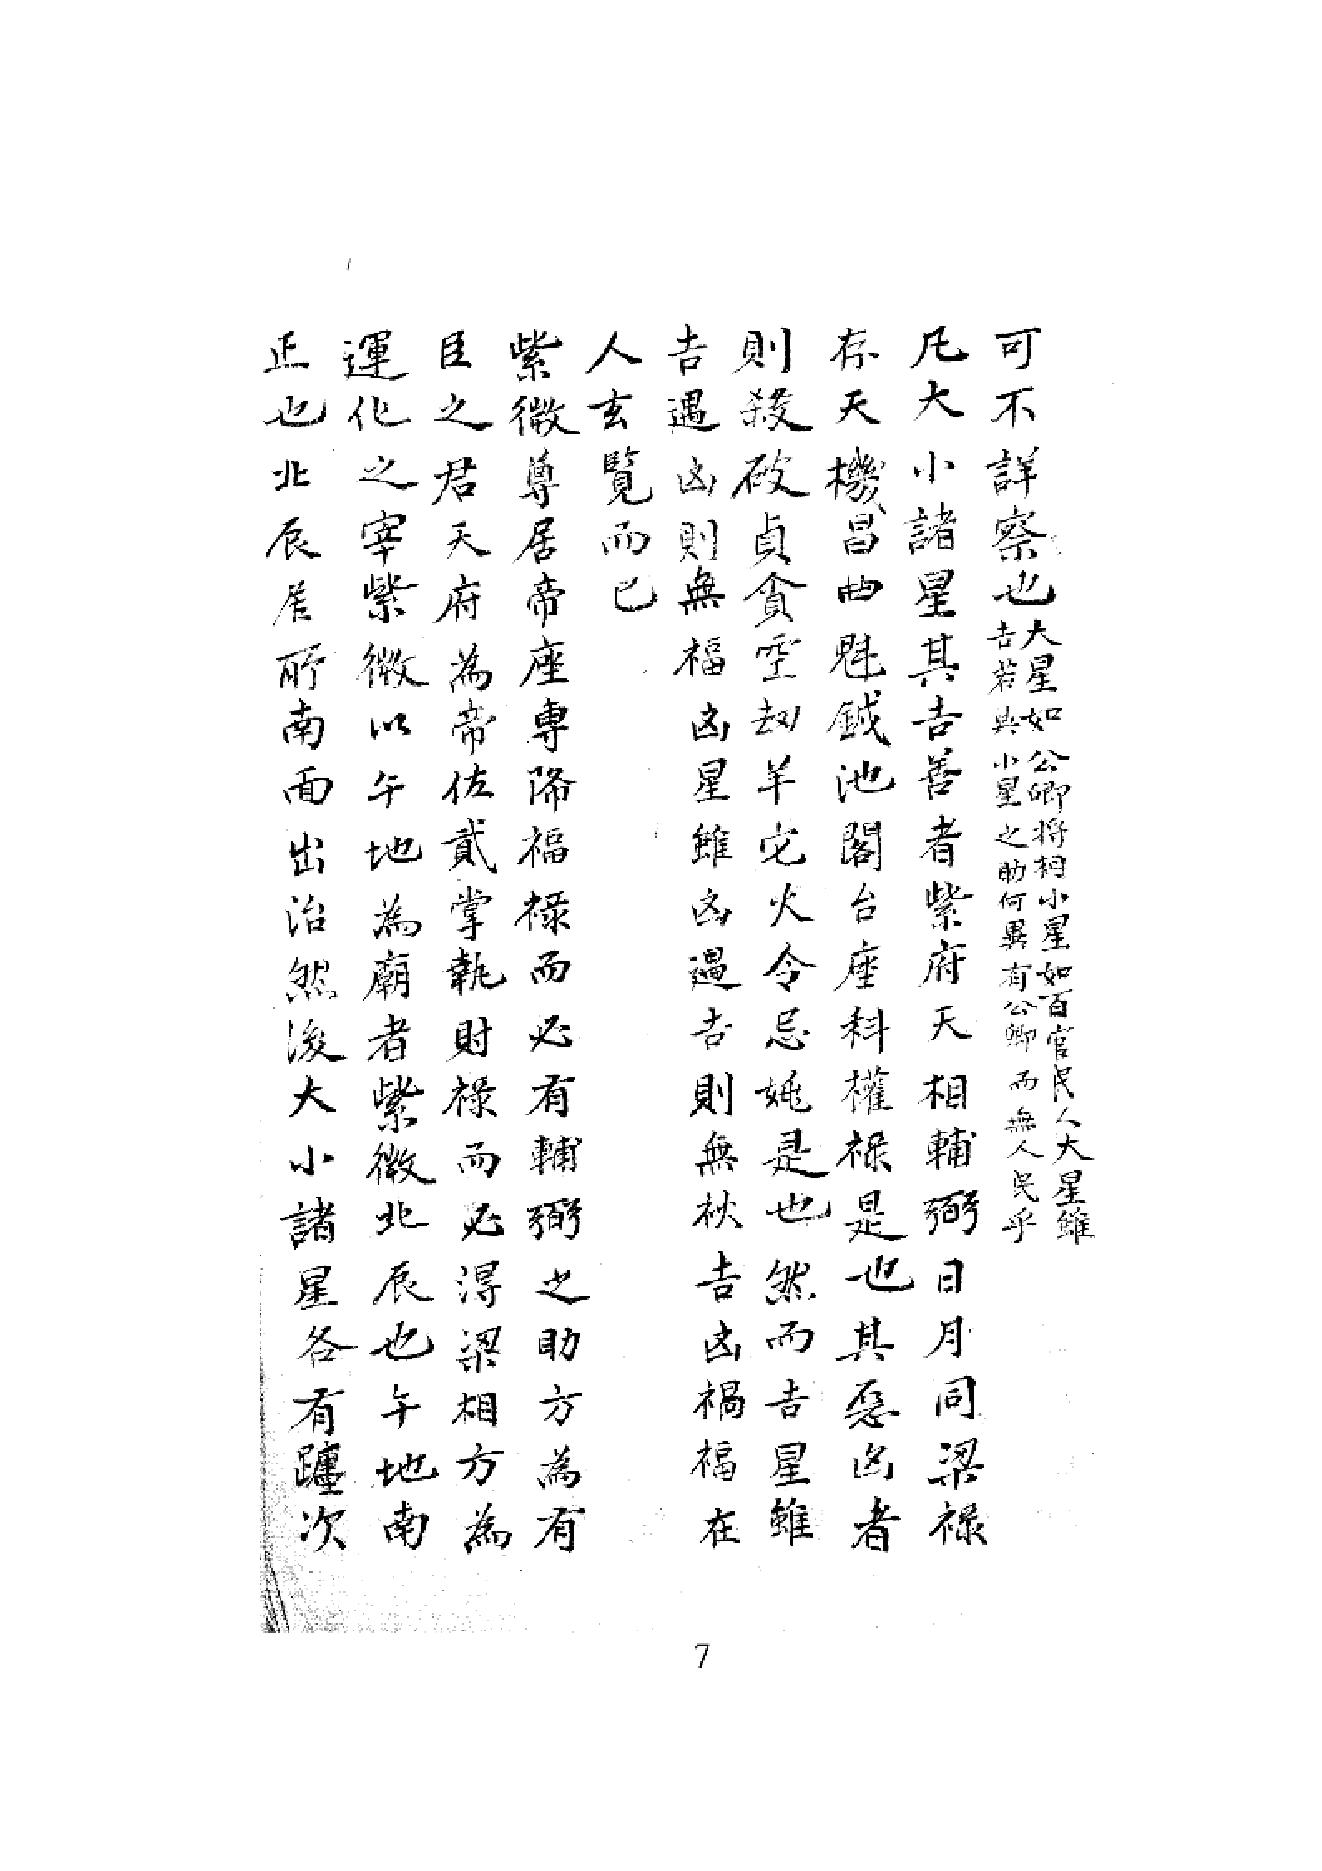 可不詳察也大星如公卿將相小星如百官民人大星雖
吉若無小星之助何異有公卿而無人民乎
凡大小諸星其吉善者紫府天相輔弼日月同梁祿
存天機昌曲魁鉞池閣台座科權祿是也其惡凶者
則殺破貞貪空劫羊它火令忌姚是也然而吉星雖
吉遇凶則無福凶星雖凶遇吉則無秋吉凶禍福在
人玄覽而已
紫微尊居帝座專降福祿而必有輔弼之助方為有
臣之君天府為帝佐貳掌執財祿而必得梁相方為
運化之宰紫微以午地為廟者紫微北辰也午地南
正也北辰居所南面出治然後大小諸星各有躔次
7